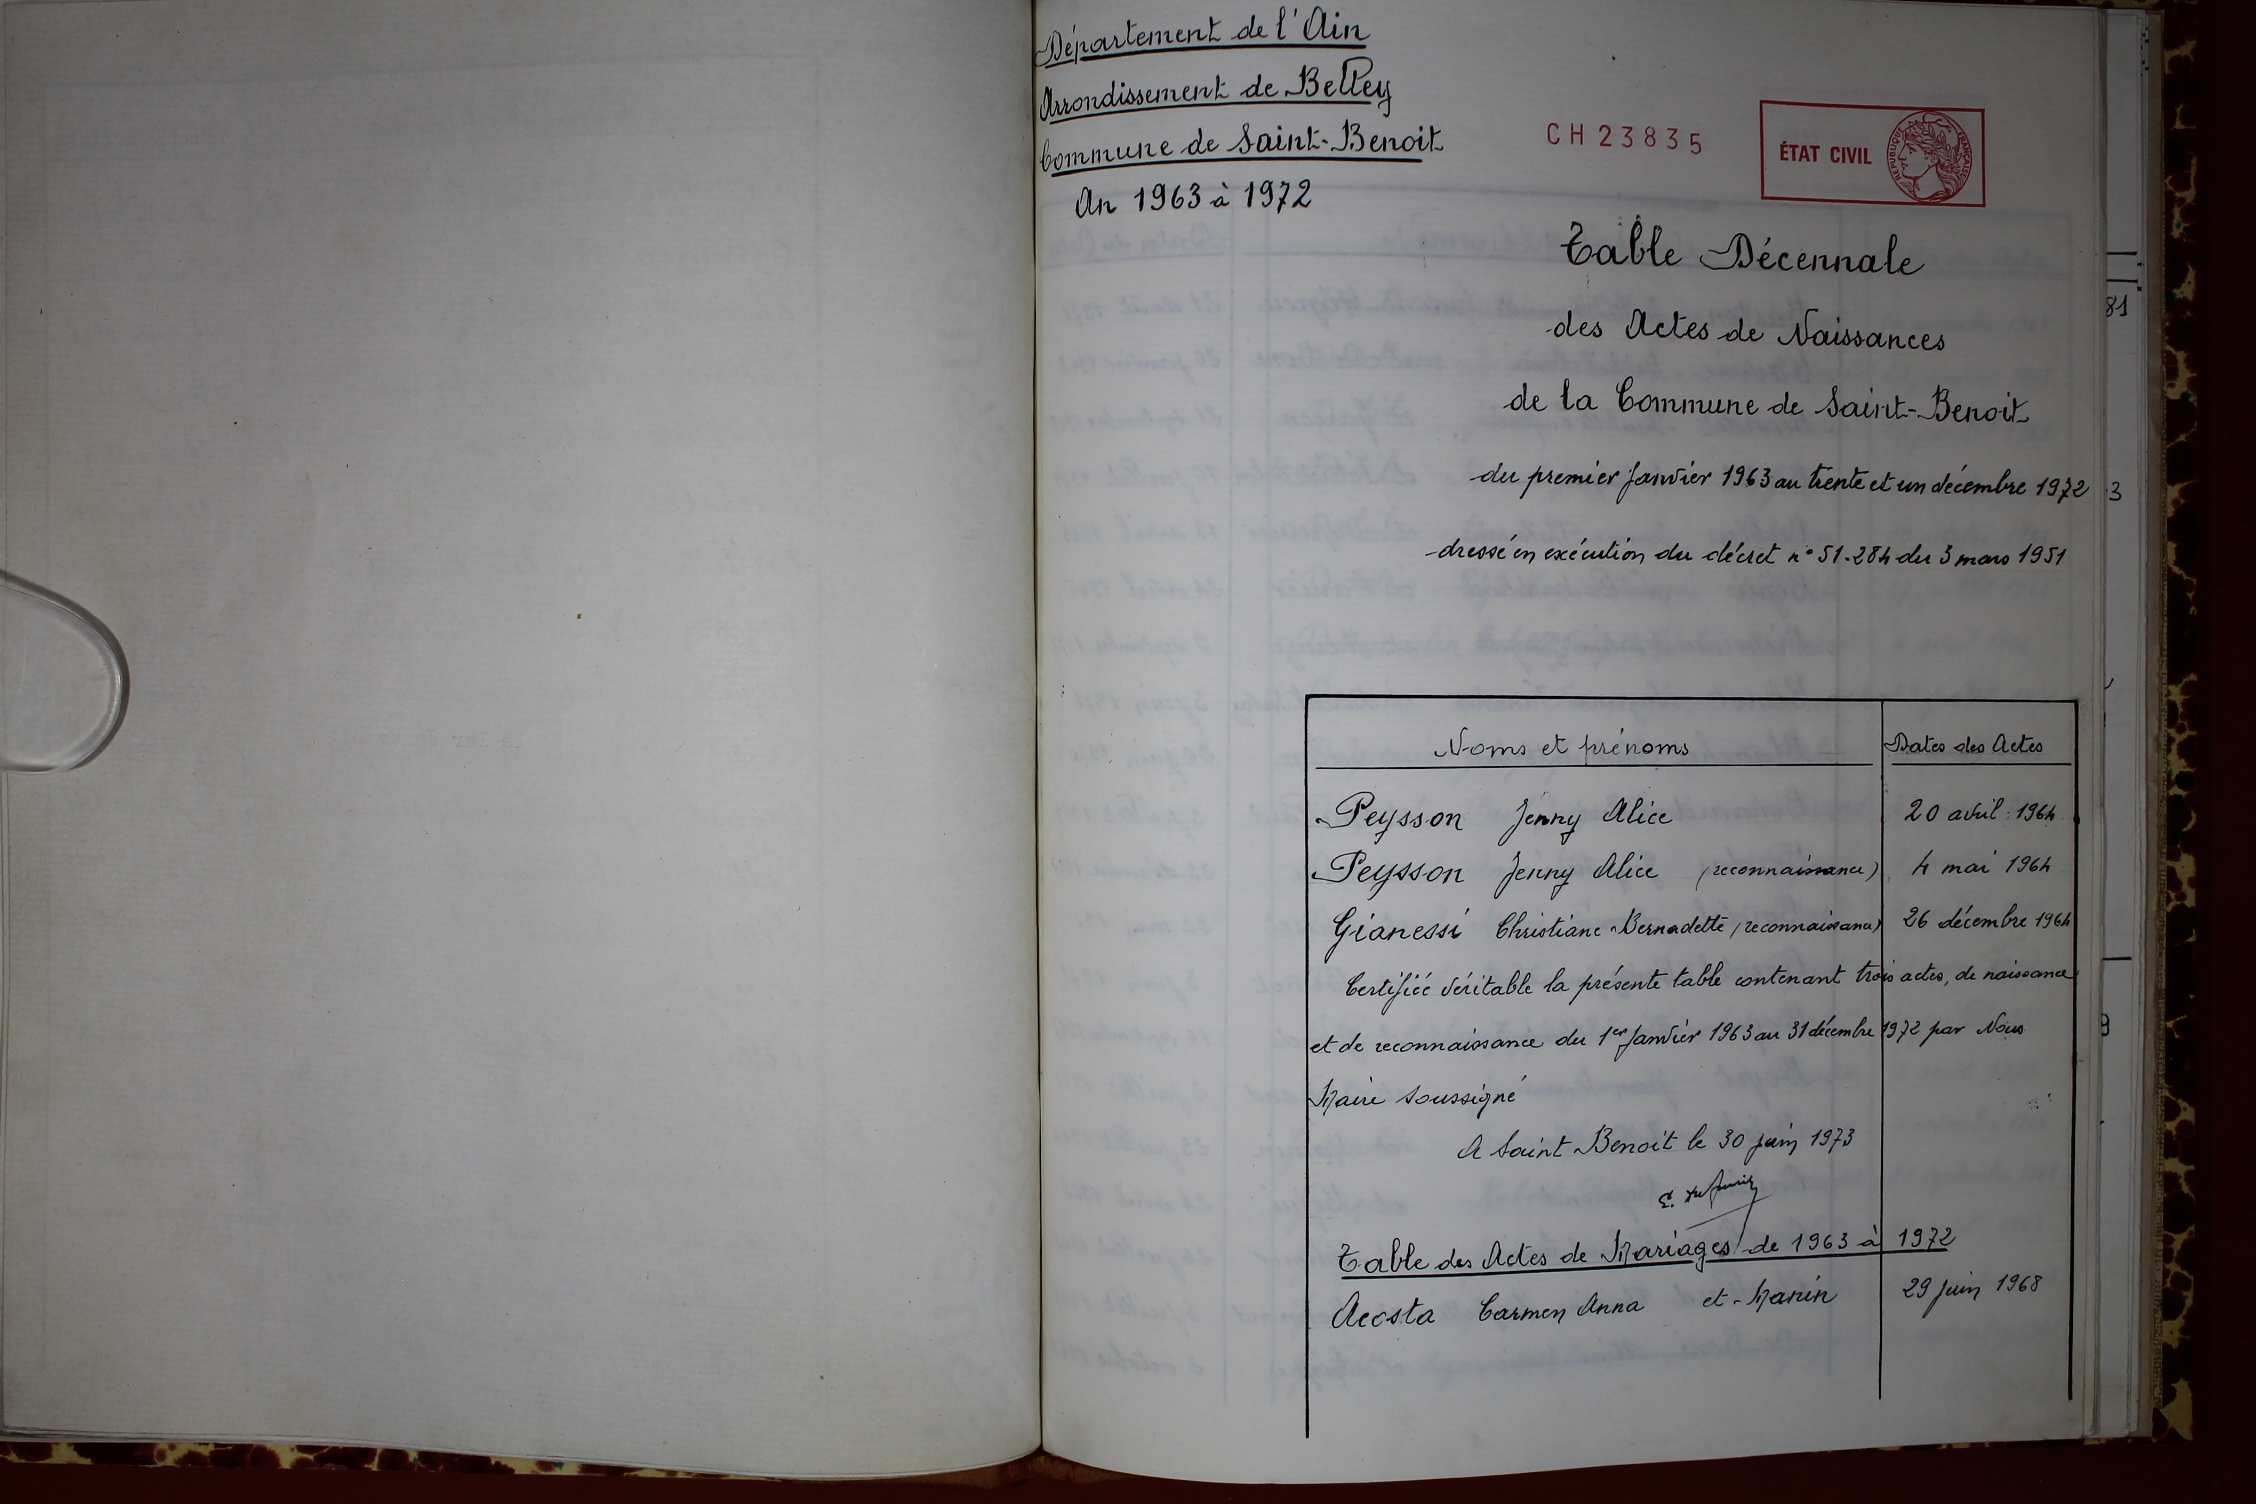 Département de l'Ain
Arrondissement de Belley
Commune de Saint-Benoit
An 1963 à 1972
CH 23835
ÉTAT CIVIL
RÉPUBLIQUE FRANÇAISE
Table Décennale
des Actes de Naissances
de la Commune de Saint-Benoit
du premier Janvier 1963 au trente et un décembre 1972
dressé en exécution du décret n° 51.284 du 3 mars 1951
Noms et prénoms Dates des Actes
Peysson Jenny Alice 20 avril 1964
Peysson Jenny Alice (reconnaissance) 4 mai 1964
Gianessi Christiane Bernadette (reconnaissance) 26 décembre 1964
Certifiée véritable la présente table contenant trois actes, de naissance
et de reconnaissance du 1er Janvier 1963 au 31 décembre 1972 par Nous
Maire soussigné
A Saint Benoit le 30 juin 1973
Table des Actes de Mariages de 1963 à 1972
Acosta Carmen Anna et Manin 29 Juin 1968
81
3